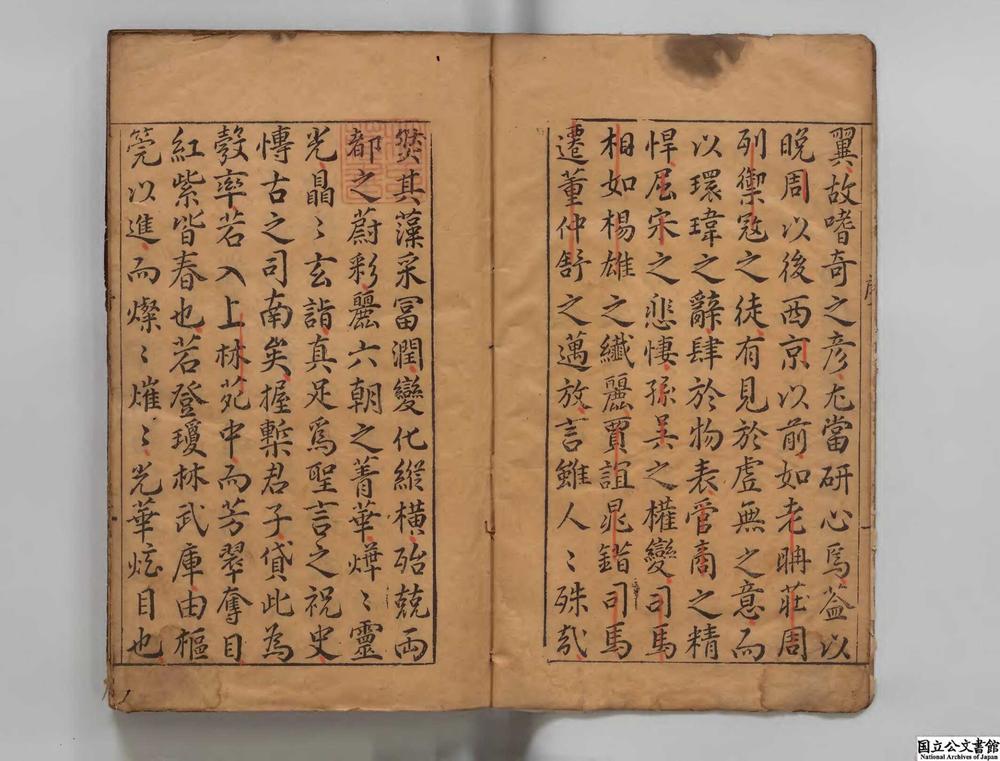 翼故嗜奇之彦尤當研心焉葢以
晚周以後西京以前如老聃莊周
列禦冦之徒有見於虚無之意而
以環瑋之辭肆於物表管商之精
悍屈宋之悲悽孫吴之權變司馬
相如楊雄之纎麗賈誼晁錯司馬
遷董仲舒之邁放言雖人〻殊㢤
樊其藻采冨潤變化縱横殆兢兩
都之蔚彩麗六朝之菁華燁〻靈
光晶〻玄詣真足為聖言之祝史
慱古之司南矣握槧君子貸此為
彀率若入上林苑中而芳翠奪目
紅紫皆春也若登瓊林武庫由樞
筦以進而燦〻熣〻光華炫目也
序
国立公文書館
National Archives of Japan